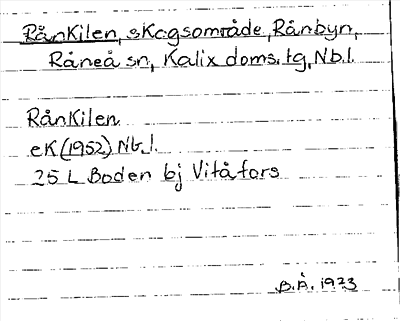 Rånkilen, skogsområde, Rånbyn,
Råneå sn, Kalix doms. tg, Nb.l.
Rånkilen
eK (1952) Nb.l.
25 L Boden bj Vitåfors
B.Å. 1973